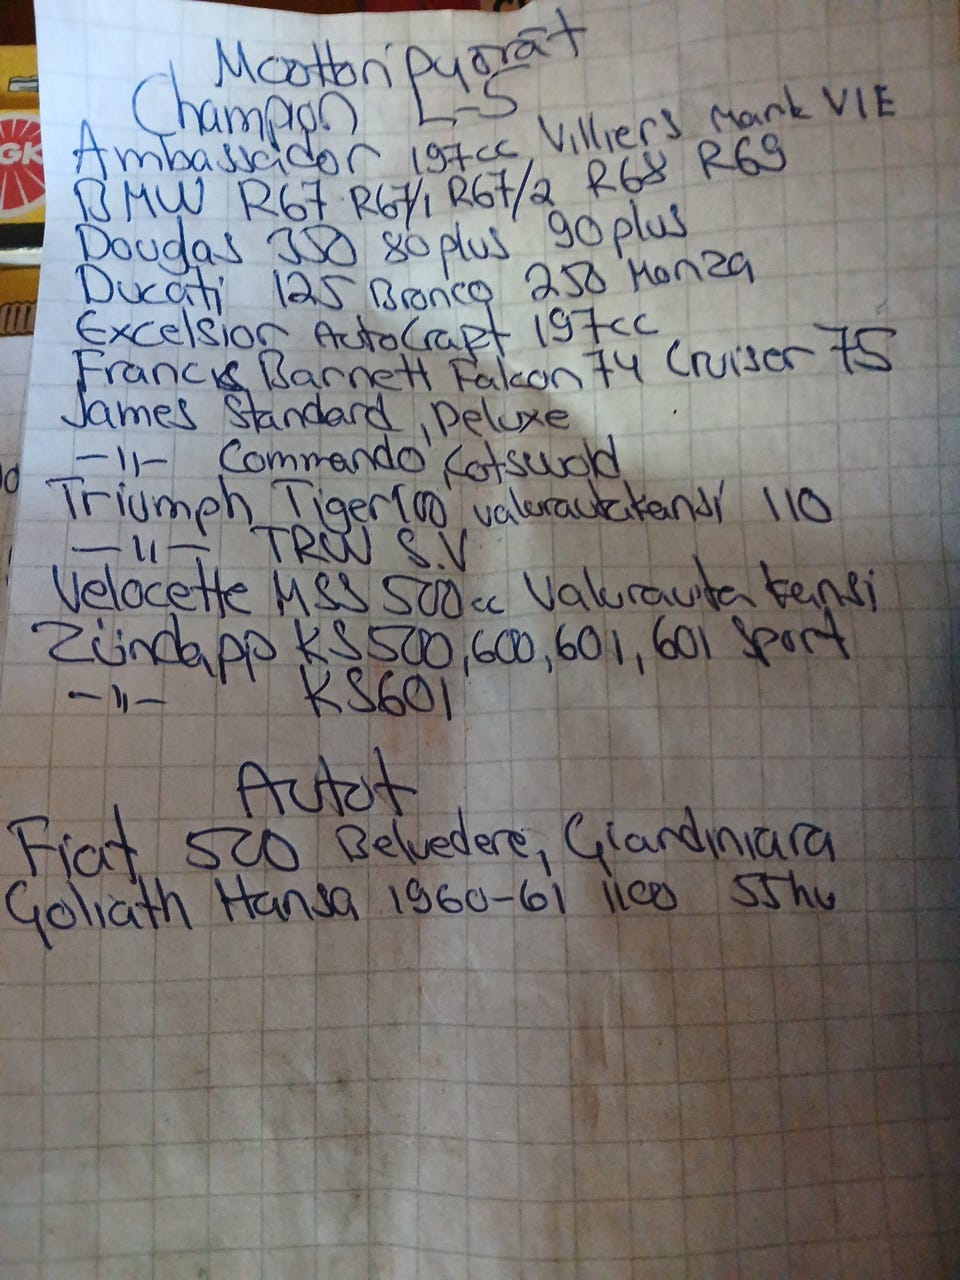 Moottoripyörät
Champion L-5
Ambassador 197cc Villiers Mark VIE
BMW R67 R67/1 R67/2 R68 R69
Dougas 350 80 plus 90 plus
Ducati 125 Bronco 250 Monza
Excelsior AutoCrapt 197cc
Francis Barnett Falcon 74 Cruiser 75
James Standard, Deluxe
-11- Commando Cotswold
Triumph Tiger 100 valurautakansi 110
-11- TRW S.V
Velocette MSS 500cc Valurauta kansi
Zündapp KS500, 600, 601, 601 Sport
-11- KS601
Autot
Fiat 500 Belvedere, Giardiniara
Goliath Hansa 1960-61 1100 55hv
GK